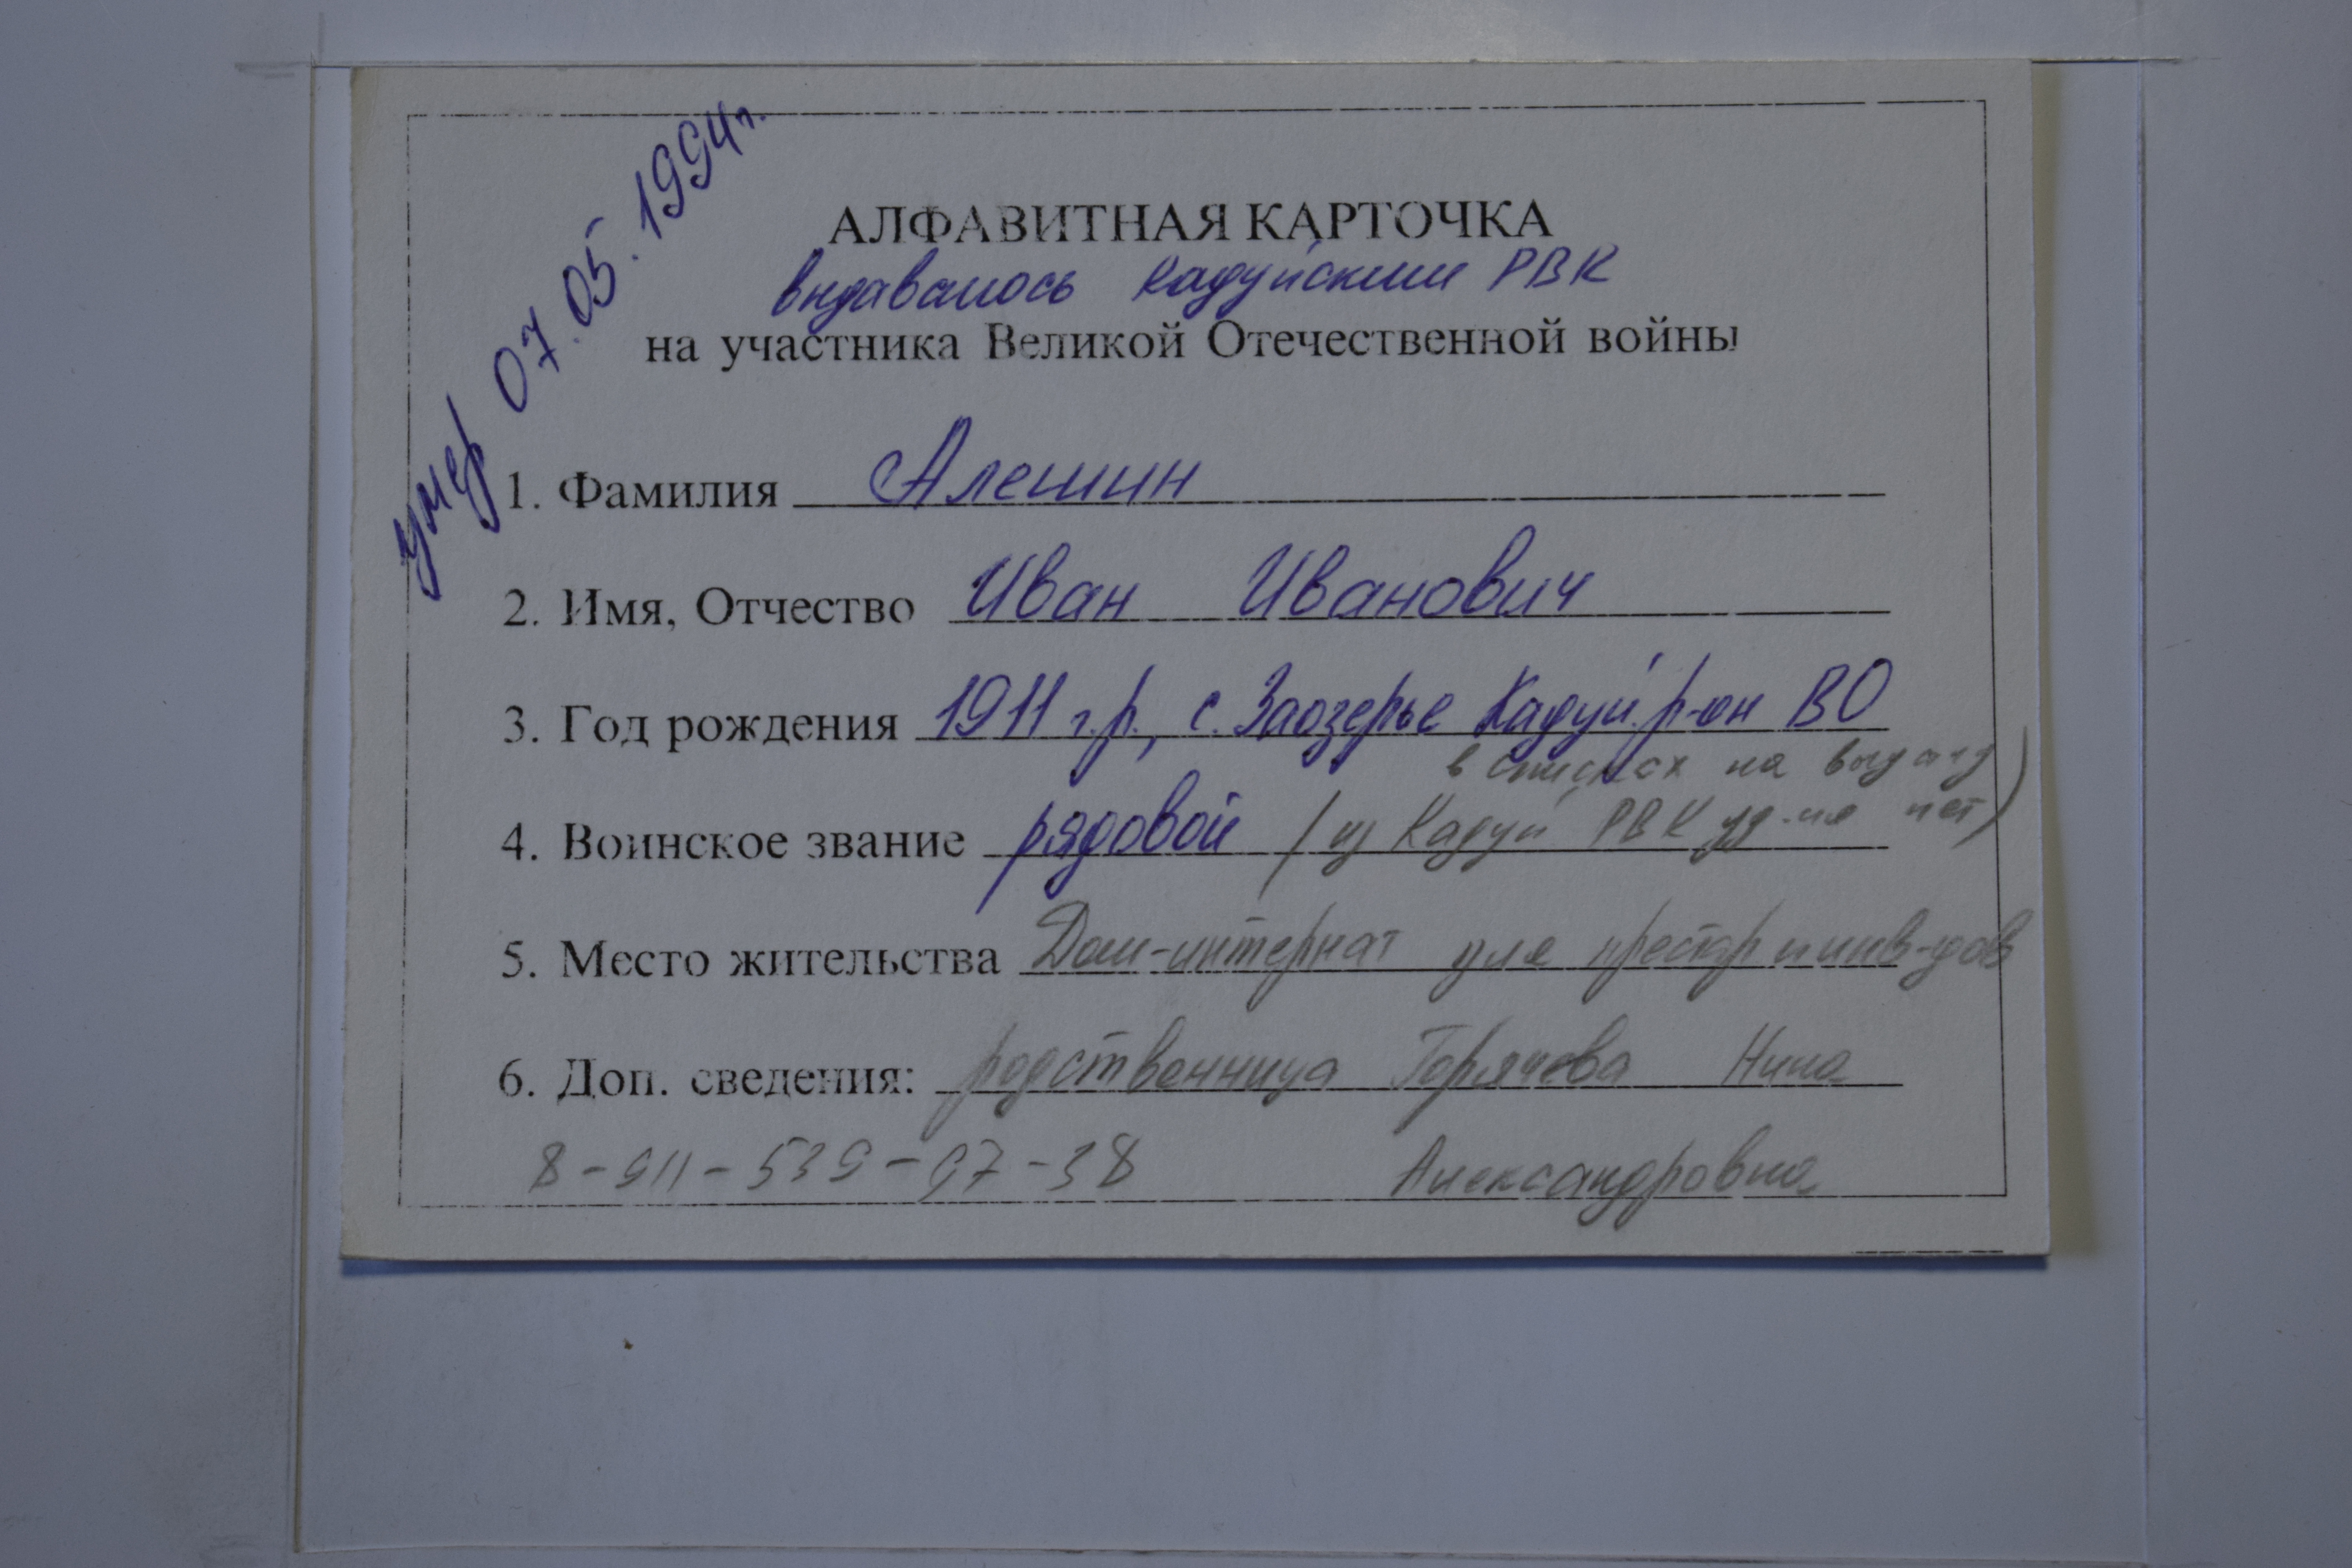 умер 07.05.1994г.
АЛФАВИТНАЯ КАРТОЧКА
выдавалось Кадуйским РВК
на участника Великой Отечественной войны
1. Фамилия Алешин
2. Имя, Отчество Иван Иванович
3. Год рождения 1911 г.р., с. Заозерье Кадуй. р-он ВО
в списках на выдачу
4. Воинское звание рядовой (из Кадуй РВК уд-ия нет)
5. Место жительства Дом-интернат для престар и инв-дов
6. Доп. сведения: родственница Горячева Нина
8-911-539-97-38 Александровна